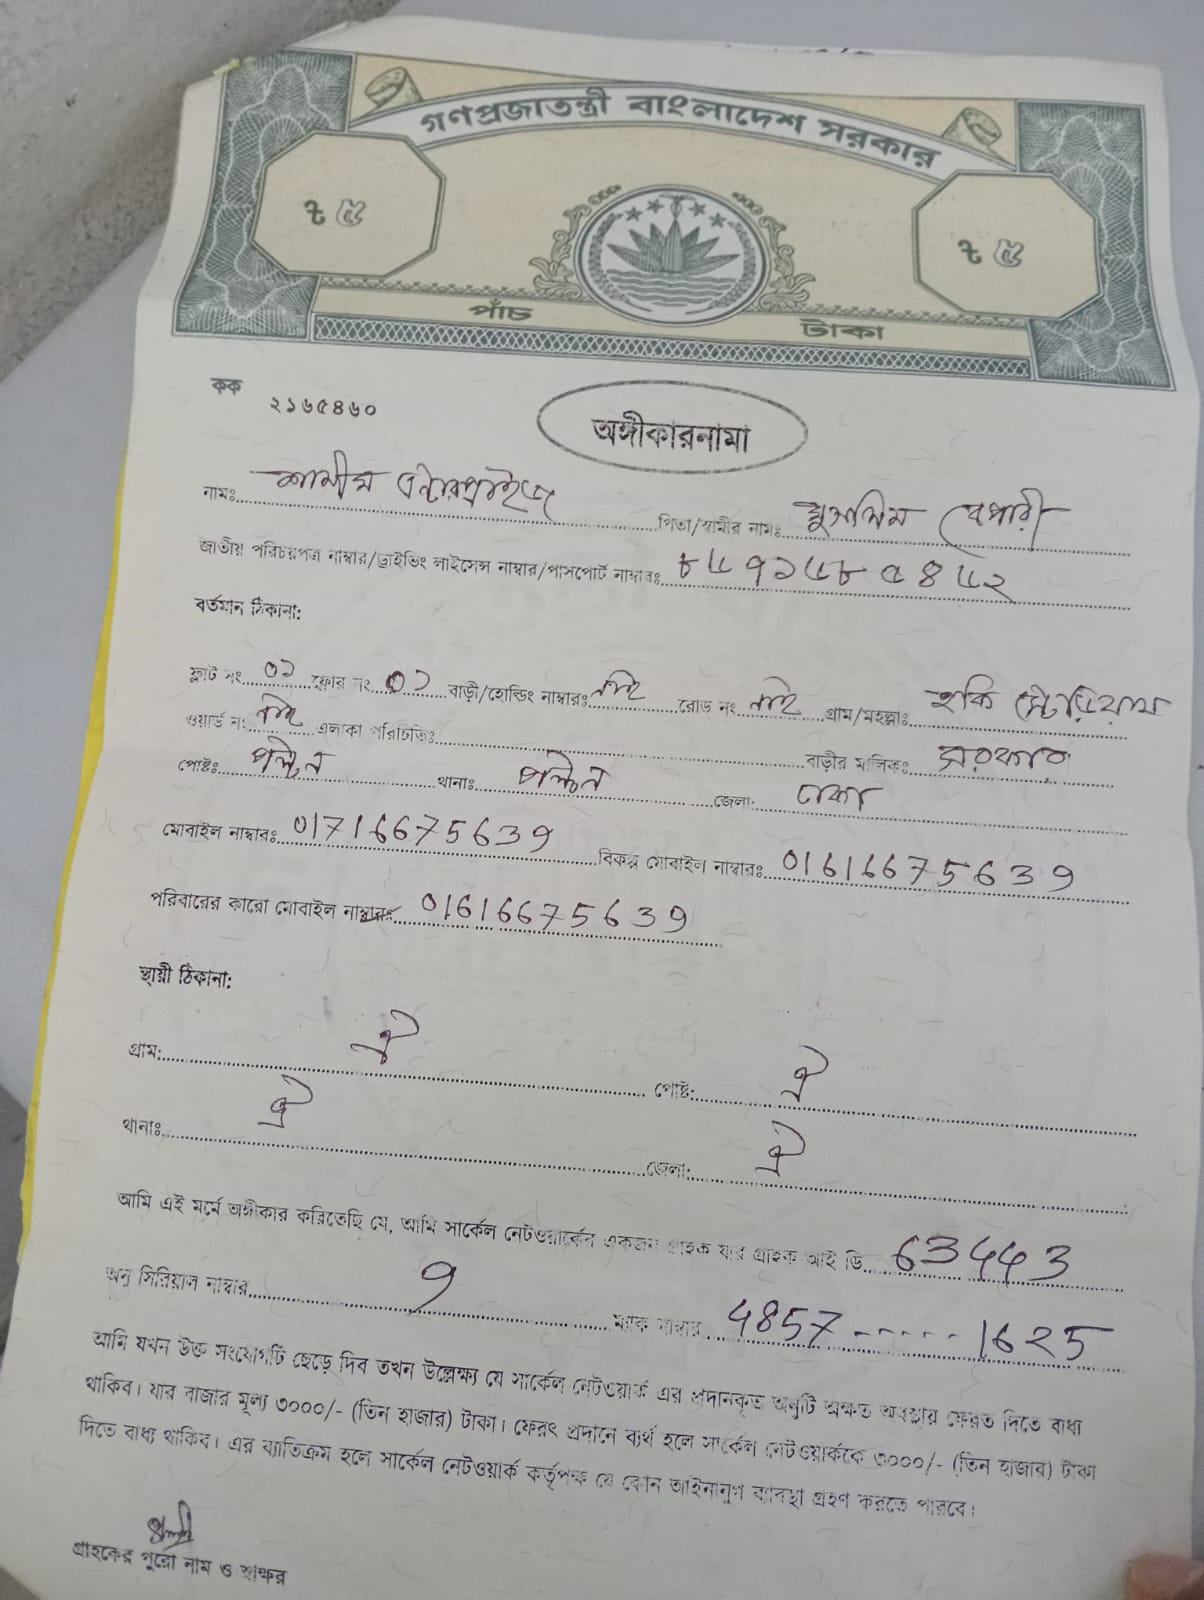 গণপ্রজাতন্ত্রী বাংলাদেশ সরকার
৳ ৫ ৳ ৫
পাঁচ টাকা
কক ২১৬৫৪৬০
অঙ্গীকারনামা
নামঃ শামীম এন্টারপ্রাইজ পিতা/স্বামীর নামঃ মুসলিম বেপারী
জাতীয় পরিচয়পত্র নাম্বার/ড্রাইভিং লাইসেন্স নাম্বার/পাসপোর্ট নাম্বারঃ ৮৬৭১৬৮৫৪৬২
বর্তমান ঠিকানা:
ফ্লাট নং ০১ ফ্লোর নং ০১ বাড়ী/হোল্ডিং নাম্বারঃ নাই রোড নং নাই গ্রাম/মহল্লাঃ হকি স্টেডিয়াম
ওয়ার্ড নং নাই এলাকা পরিচিতিঃ বাড়ীর মালিকঃ সরকার
পোষ্টঃ পল্টন থানাঃ পল্টন জেলা: ঢাকা
মোবাইল নাম্বারঃ 01716675639 বিকল্প মোবাইল নাম্বারঃ 01616675639
পরিবারের কারো মোবাইল নাম্বারঃ 01616675639
স্থায়ী ঠিকানা:
গ্রাম: ঐ পোষ্ট: ঐ
থানাঃ ঐ জেলা: ঐ
আমি এই মর্মে অঙ্গীকার করিতেছি যে, আমি সার্কেল নেটওয়ার্কের একজন গ্রাহক যার গ্রাহক আই ডি 63443
অনু সিরিয়াল নাম্বার 9 ম্যাক নাম্বার 4857-----1625
আমি যখন উক্ত সংযোগটি ছেড়ে দিব তখন উল্লেক্ষ্য যে সার্কেল নেটওয়ার্ক এর প্রদানকৃত অনুটি অক্ষত অবস্থায় ফেরত দিতে বাধ্য
থাকিব। যার বাজার মূল্য ৩০০০/- (তিন হাজার) টাকা। ফেরৎ প্রদানে ব্যর্থ হলে সার্কেল নেটওয়ার্ককে ৩০০০/- (তিন হাজার) টাকা
দিতে বাধ্য থাকিব। এর ব্যাতিক্রম হলে সার্কেল নেটওয়ার্ক কর্তৃপক্ষ যে কোন আইনানুগ ব্যাবস্থা গ্রহণ করতে পারবে।
গ্রাহকের পুরো নাম ও স্বাক্ষর